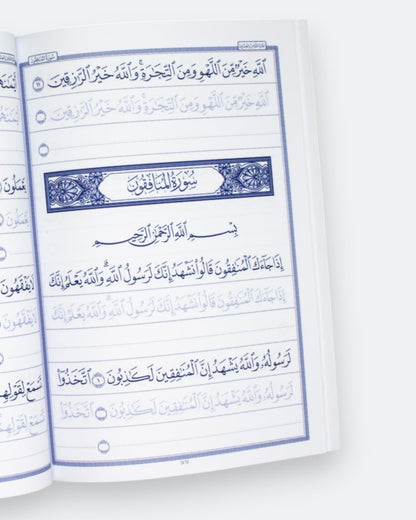 ٱللَّهِ خَيْرٌ مِّنَ ٱللَّهْوِ وَمِنَ ٱلتِّجَٰرَةِ ۚ وَٱللَّهُ خَيْرُ ٱلرَّٰزِقِينَ ١١
ٱللَّهِ خَيْرٌ مِّنَ ٱللَّهْوِ وَمِنَ ٱلتِّجَٰرَةِ ۚ وَٱللَّهُ خَيْرُ ٱلرَّٰزِقِينَ
سُورَةُ المُنَافِقُونَ
بِسْمِ ٱللَّهِ ٱلرَّحْمَٰنِ ٱلرَّحِيمِ
إِذَا جَآءَكَ ٱلْمُنَٰفِقُونَ قَالُوا۟ نَشْهَدُ إِنَّكَ لَرَسُولُ ٱللَّهِ ۗ وَٱللَّهُ يَعْلَمُ إِنَّكَ
إِذَا جَآءَكَ ٱلْمُنَٰفِقُونَ قَالُوا۟ نَشْهَدُ إِنَّكَ لَرَسُولُ ٱللَّهِ وَٱللَّهُ يَعْلَمُ إِنَّكَ
لَرَسُولُهُۥ وَٱللَّهُ يَشْهَدُ إِنَّ ٱلْمُنَٰفِقِينَ لَكَٰذِبُونَ ١ ٱتَّخَذُوٓا۟
لَرَسُولُهُۥ وَٱللَّهُ يَشْهَدُ إِنَّ ٱلْمُنَٰفِقِينَ لَكَٰذِبُونَ ٱتَّخَذُوٓا۟
يَفْقَهُونَ
تَسْمَعْ لِقَوْلِهِمْ